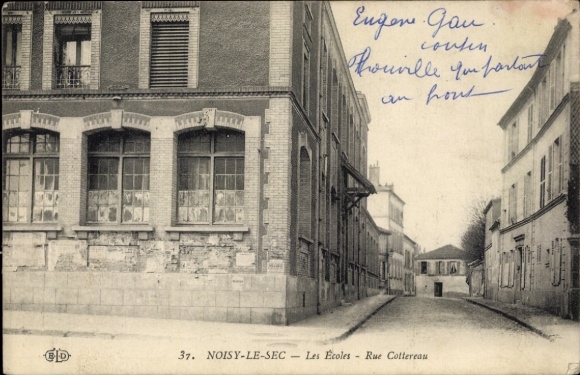 Eugene Gau
cousin
Thouville qui partait
au front
ELD
37. NOISY-LE-SEC — Les Écoles - Rue Cottereau